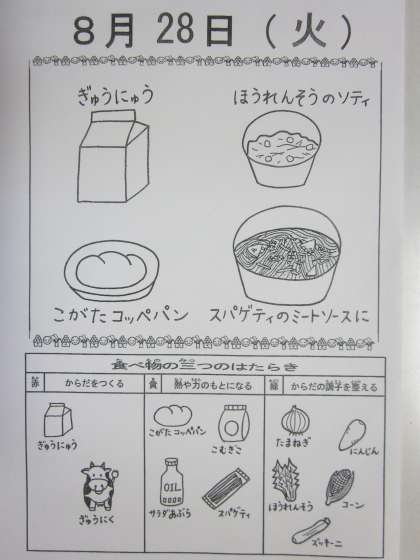 8月 28日 (火)
ぎゅうにゅう
ほうれんそうのソティ
こがたコッペパン
スパゲティのミートソースに
食べ物の三つのはたらき
赤 からだをつくる
黄 熱や力のもとになる
緑 からだの調子を整える
ぎゅうにゅう
ぎゅうにく
こがたコッペパン
こむぎこ
OIL
サラダあぶら
スパゲティ
たまねぎ
にんじん
ほうれんそう
コーン
ズッキーニ